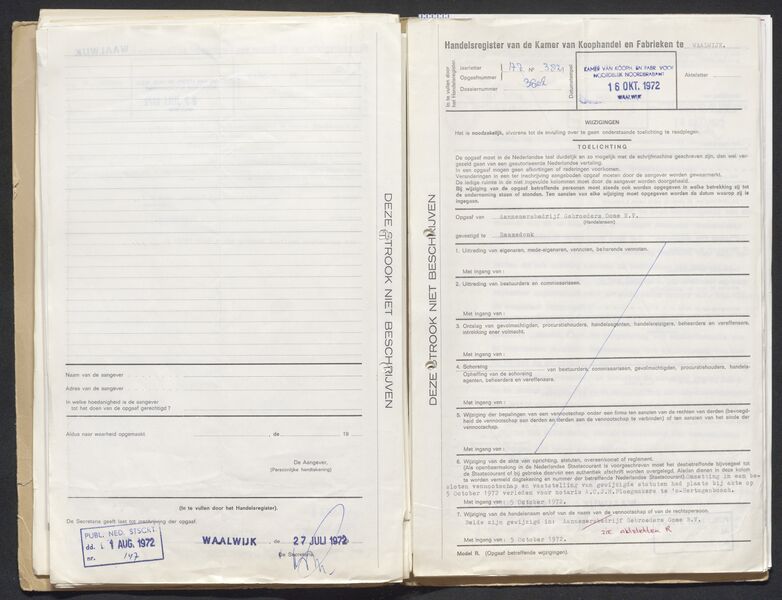 DEZE STROOK NIET BESCHRIJVEN
Naam van de aangever
Adres van de aangever
In welke hoedanigheid is de aangever
tot het doen van de opgaaf gerechtigd ?
Aldus naar waarheid opgemaakt , de 19
De Aangever,
(Persoonlijke handtekening)
(In te vullen door het Handelsregister).
De Secretaris geeft last tot inschrijving der opgaaf.
PUBL. NED. STSCRT.
dd. 1 AUG. 1972
nr. 147
WAALWIJK , de 27 JULI 1972
De Secretaris,
DEZE STROOK NIET BESCHRIJVEN
Handelsregister van de Kamer van Koophandel en Fabrieken te WAALWIJK.
In te vullen door het Handelsregister
Jaarletter AZ № 3821
Opgaafnummer
Dossiernummer 3602
Datumstempel
KAMER VAN KOOPH. EN FABR. VOOR
NOORDELIJK NOORDBRABANT
16 OKT. 1972
WAALWIJK
Akteletter
WIJZIGINGEN
Het is noodzakelijk, alvorens tot de invulling over te gaan onderstaande toelichting te raadplegen.
TOELICHTING
De opgaaf moet in de Nederlandse taal duidelijk en zo mogelijk met de schrijfmachine geschreven zijn, dan wel vergezeld gaan van een geautoriseerde Nederlandse vertaling.
In een opgaaf mogen geen afkortingen of raderingen voorkomen.
Veranderingen in een ter inschrijving aangeboden opgaaf moeten door de aangever worden gewaarmerkt.
De ledige ruimte in de niet ingevulde kolommen moet door de aangever worden doorgehaald.
Bij wijziging van de opgaaf betreffende personen moet steeds ook worden opgegeven in welke betrekking zij tot
de onderneming staan of stonden. Ten aanzien van elke wijziging moet opgegeven worden de datum waarop zij is
ingegaan.
Opgaaf van Aannemersbedrijf Gebroeders Oome N.V.
(Handelsnaam)
gevestigd te Raamsdonk
1. Uittreding van eigenaren, mede-eigenaren, vennoten, beherende vennoten.
Met ingang van :
2. Uittreding van bestuurders en commissarissen.
Met ingang van :
3. Ontslag van gevolmachtigden, procuratiehouders, handelsagenten, handelsreizigers, beheerders en vereffenaars,
intrekking ener volmacht.
Met ingang van :
4. Schorsing
Opheffing van de schorsing van bestuurders, commissarissen, gevolmachtigden, procuratiehouders, handels-
agenten, beheerders en vereffenaars.
Met ingang van :
5. Wijziging der bepalingen van een vennootschap onder een firma ten aanzien van de rechten van derden (bevoegd-
heid der vennoten om de vennootschap aan derden en derden aan de vennootschap te verbinden) of ten aanzien van het einde der
vennootschap.
Met ingang van :
6. Wijziging van de akte van oprichting, statuten, overeenkomst of reglement.
(Als openbaarmaking in de Nederlandse Staatscourant is voorgeschreven moet het desbetreffende bijvoegsel tot
de Staatscourant of bij gebreke daarvan een authentiek afschrift worden overgelegd. Alsdan dienen in deze kolom
te worden vermeld dagtekening en nummer der betreffende Nederlandse Staatscourant) Omzetting in een be-
sloten vennootschap en vaststelling van gewijzigde statuten had plaats bij akte op
5 October 1972 verleden voor notaris A.C.J.M. Ploegmakers te 's-Hertogenbosch.
Met ingang van : 5 October 1972.
7. Wijziging van de handelsnaam en/of van de naam van de vennootschap of van de rechtspersoon.
Beide zijn gewijzigd in: Aannemersbedrijf Gebroeders Oome B.V.
zie aktletter R
Met ingang van : 5 October 1972.
Model R. (Opgaaf betreffende wijzigingen).